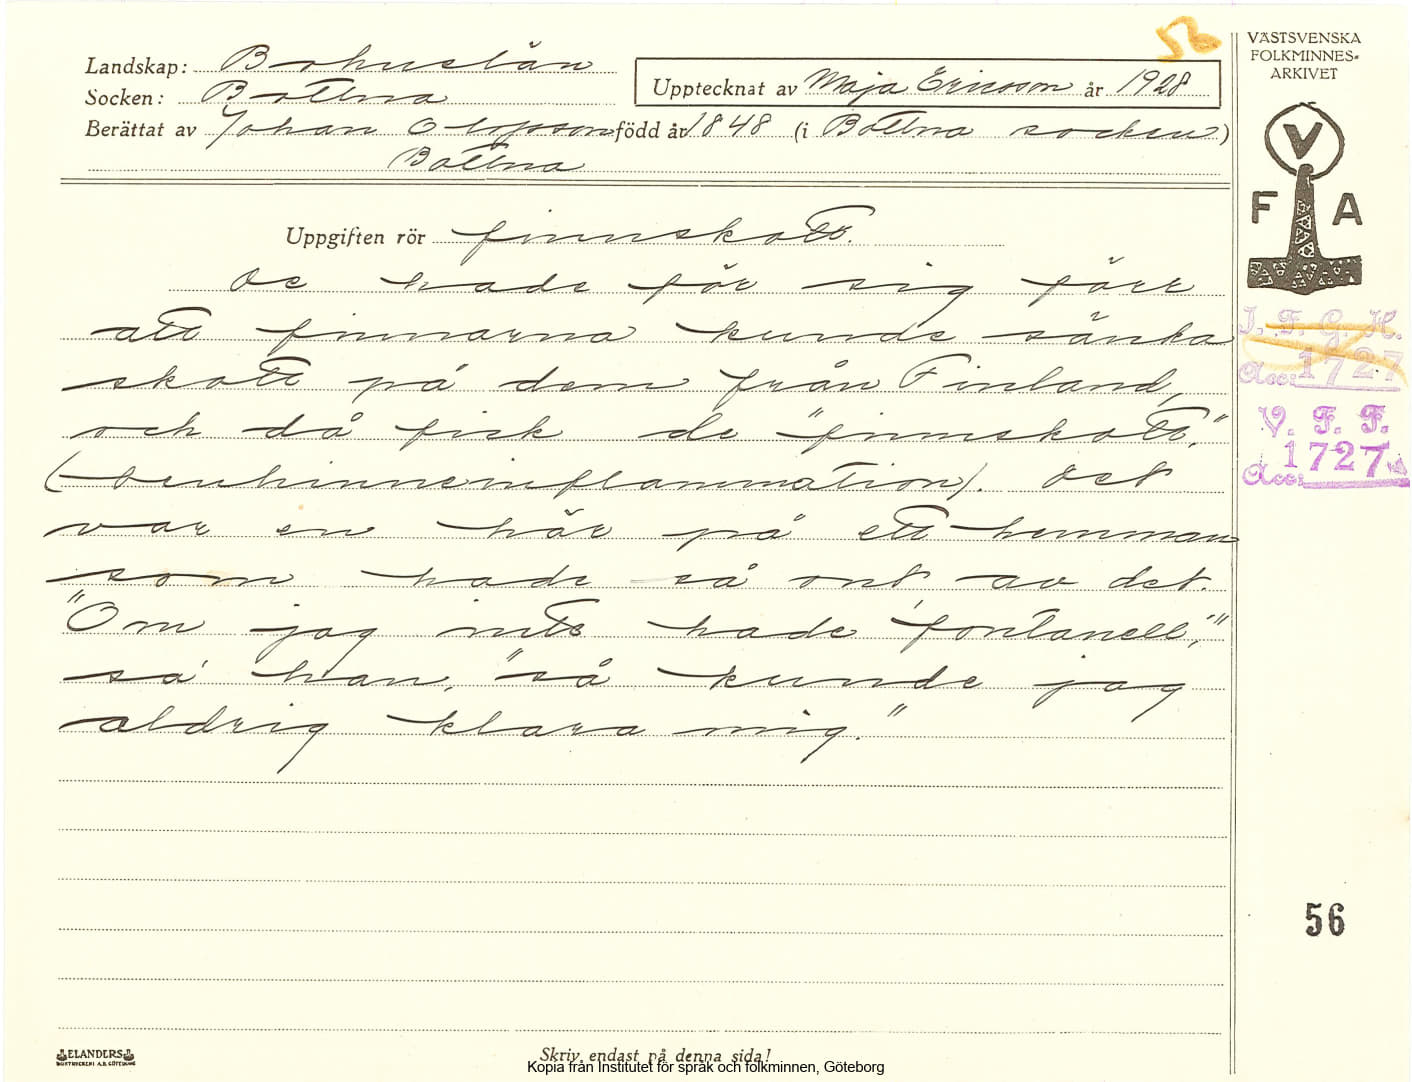 56
VÄSTSVENSKA
FOLKMINNES-
ARKIVET
Landskap: Bohuslän
Socken: Bottna
Upptecknat av Maja Ericsson år 1928
Berättat av Johan Olsson född år 1848 (i Bottna socken)
Bottna
V
F A
Uppgiften rör finnskott.
De hade för sig förr
att finnarna kunde sänka
skott på dem från Finland,
och då fick de "finnskott,"
(benhinneinflammation). Det
var en här på ett hemman
som hade så ont av det.
"Om jag inte hade 'fontanell,'"
sa' han, "så kunde jag
aldrig klara mig."
I. F. G. H.
Acc: 1727
V. F. F.
Acc: 1727
56
ELANDERS
BOKTRYCKERI A.B. GÖTEBORG
Skriv endast på denna sida!
Kopia från Institutet för språk och folkminnen, Göteborg